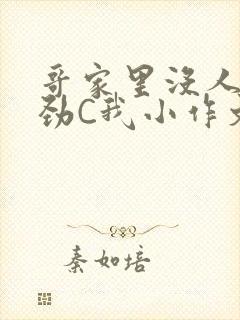 哥家里没人
劲C我小作文
秦如培